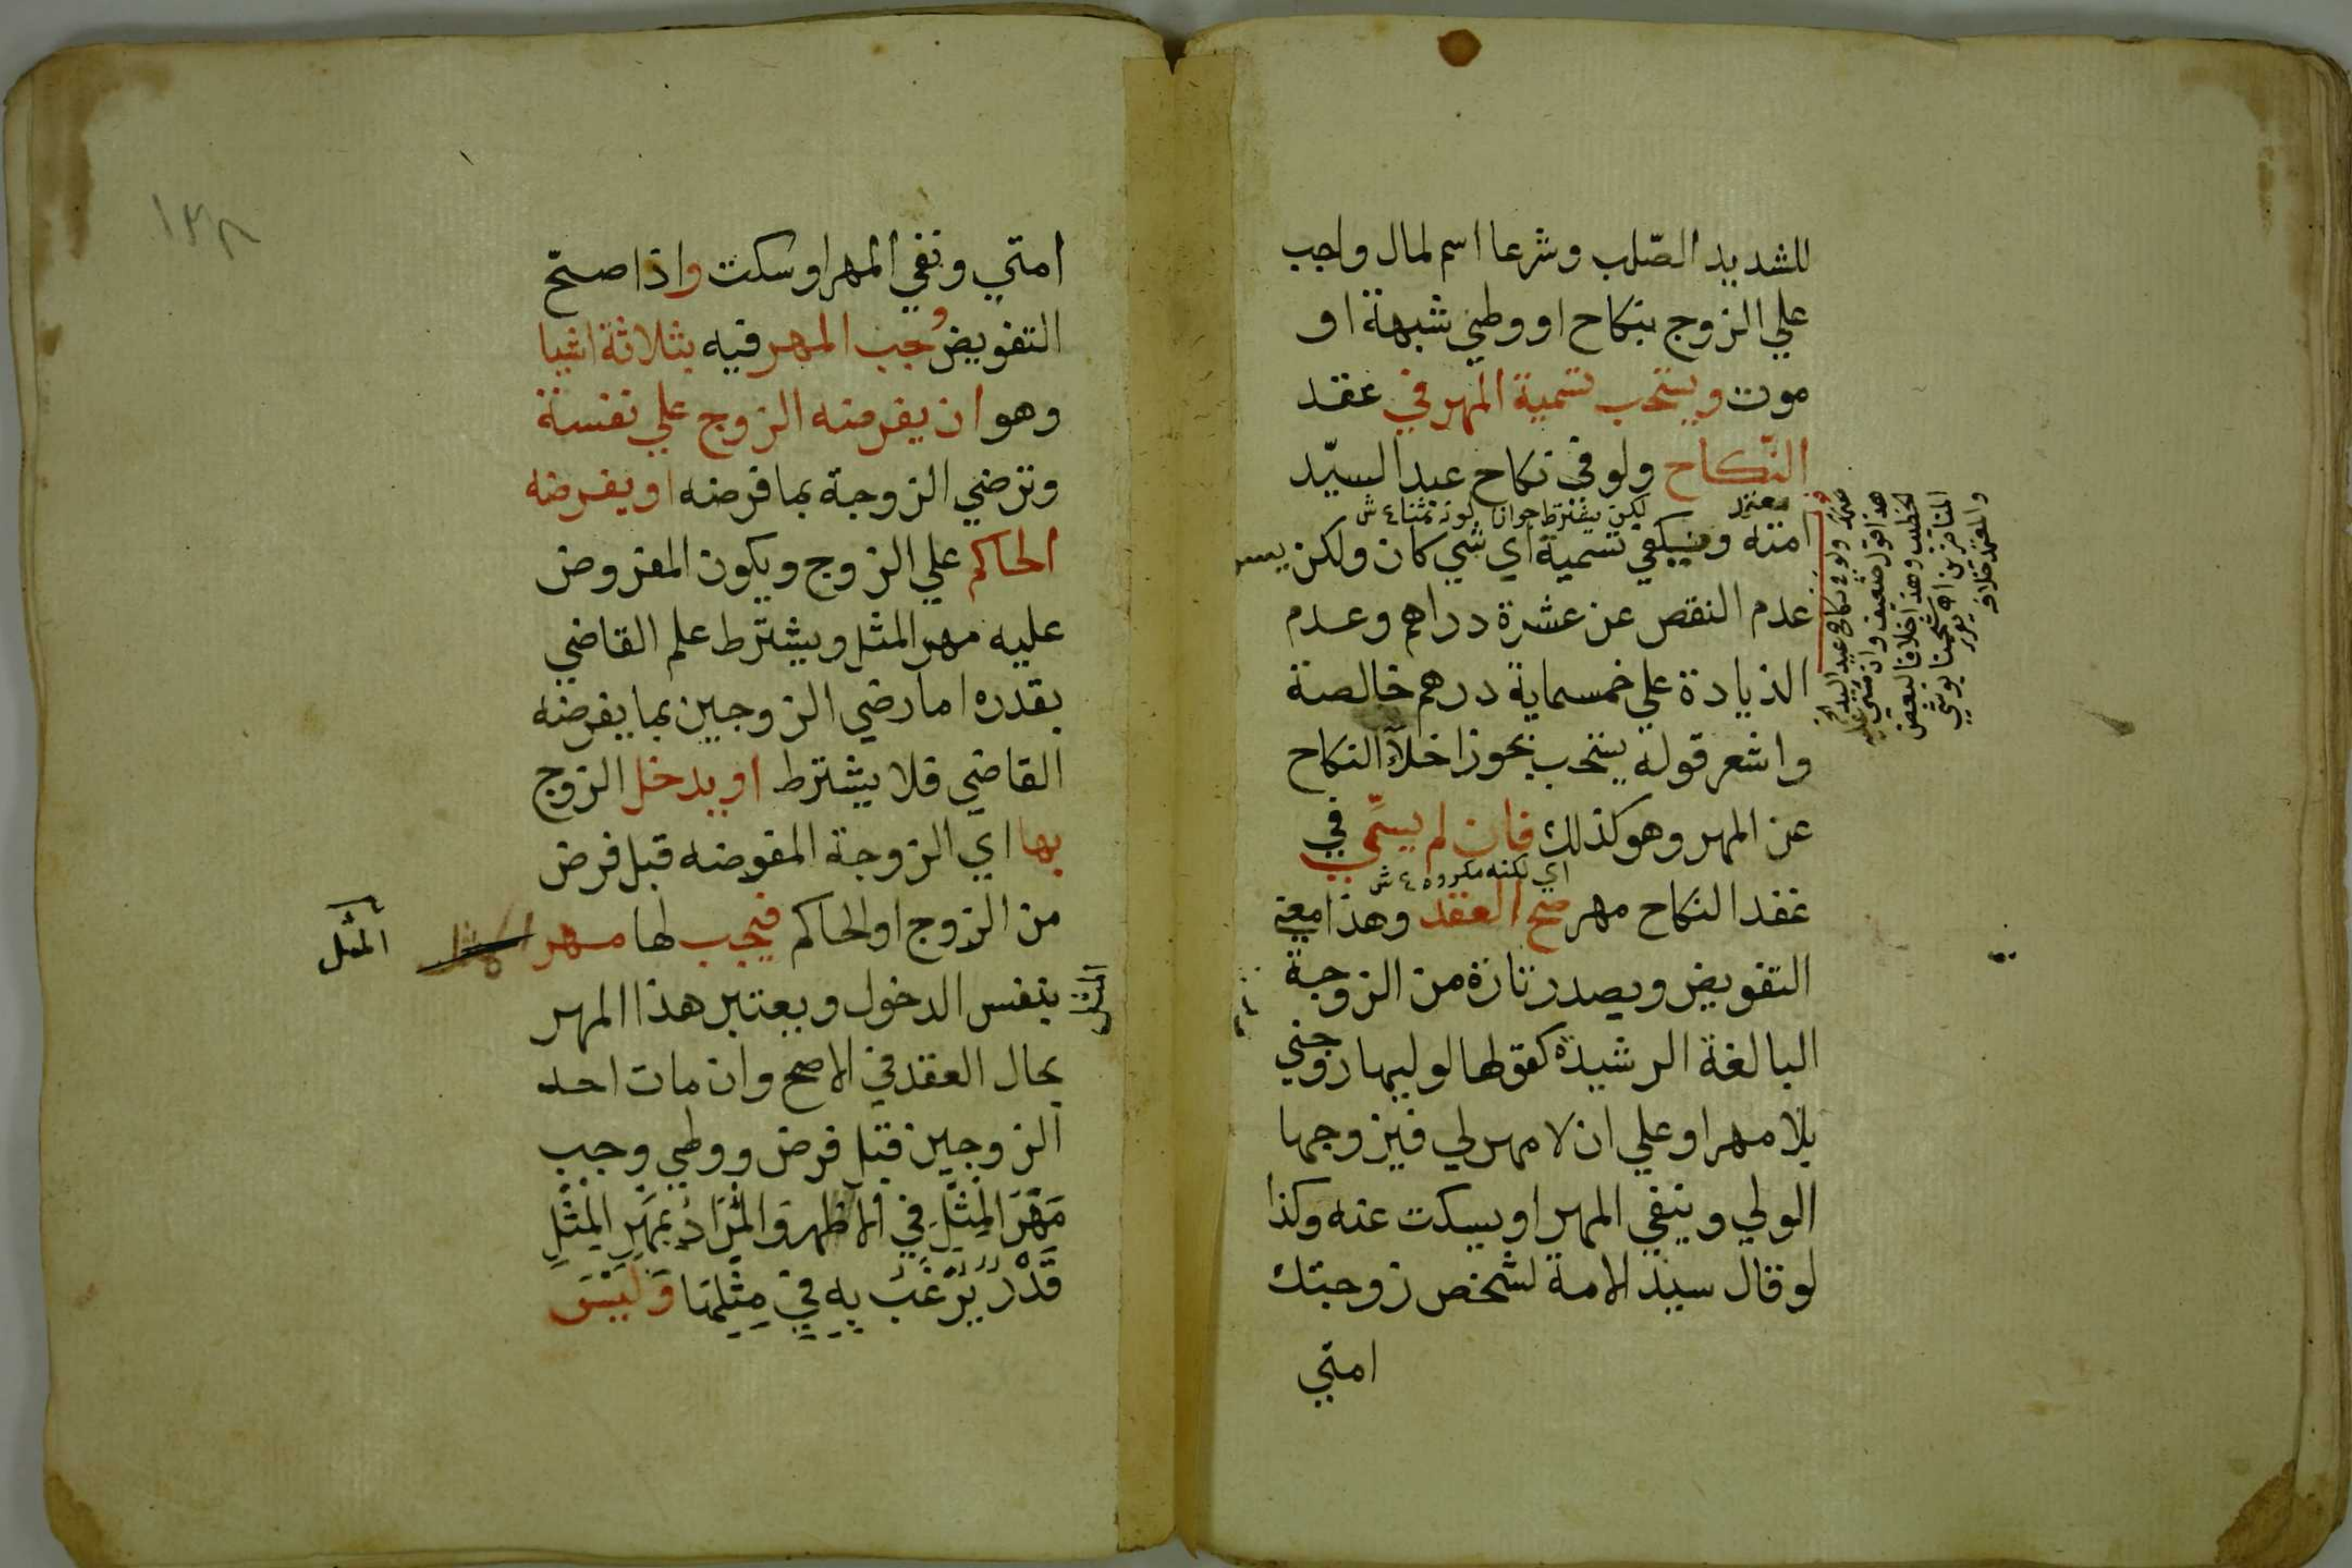 للشديد الصّلب وشرعا اسم لمال واجب
علي الزوج بنكاح او وطئ شبهة او
موت ويستحب تسمية المهر في عقد
النّكاح ولو في نكاح عبد السيّد
معتمد
لكن يشترط جواز كونه ثمنا ع ش
امته ويكفي تسمية اي شي كان ولكن يسن
عدم النقص عن عشرة دراهم وعدم
الزيادة علي خمسماية درهم خالصة
واشعر قوله يستحب بجواز اخلآء النكاح
عن المهر وهو كذلك فان لم يسمّي في
اي لكنه مكروه ع ش
عقد النكاح مهر صح العقد وهذا معني
التفويض ويصدر تارة من الزوجة
البالغة الرشيدة كقولها لوليها زوجني
بلا مهر او علي ان لا مهر لي فيزوجها
الولي وينفي المهر او يسكت عنه وكذا
لو قال سيد الامة لشخص زوجتك
امتي
ولو في نكاح عبد السيد الخ
هذا قول ضعيف وان مشي عليه
الخطيب وهذا خلافا لبعض
والمعتمد خلافه
١٣٨
امتي ونفي المهر او سكت واذا صحّ
التفويض وجب المهر فيه بثلاثة اشيا
وهو ان يفرضه الزوج علي نفسة
وترضي الزوجة بما فرضه او يفرضه
الحاكم علي الزوج ويكون المفروض
عليه مهر المثل ويشترط علم القاضي
بقدره اما رضي الزوجين بما يفرضه
القاضي فلا يشترط او يدخل الزوج
بها اي الزوجة المفوضه قبل فرض
من الزوج او الحاكم فيجب لها مهر
المثل
المثل
بنفس الدخول ويعتبر هذا المهر
بحال العقد في الاصح وان مات احد
الزوجين قبل فرض ووطي وجب
مَهْرَ المِثْلِ فِي الاظهر وَالمُرَادُ بمَهْرِ المِثْلِ
قَدْرُ يُرْغَبُ بِهِ فِي مِثْلِهَا وَلَيْسَ